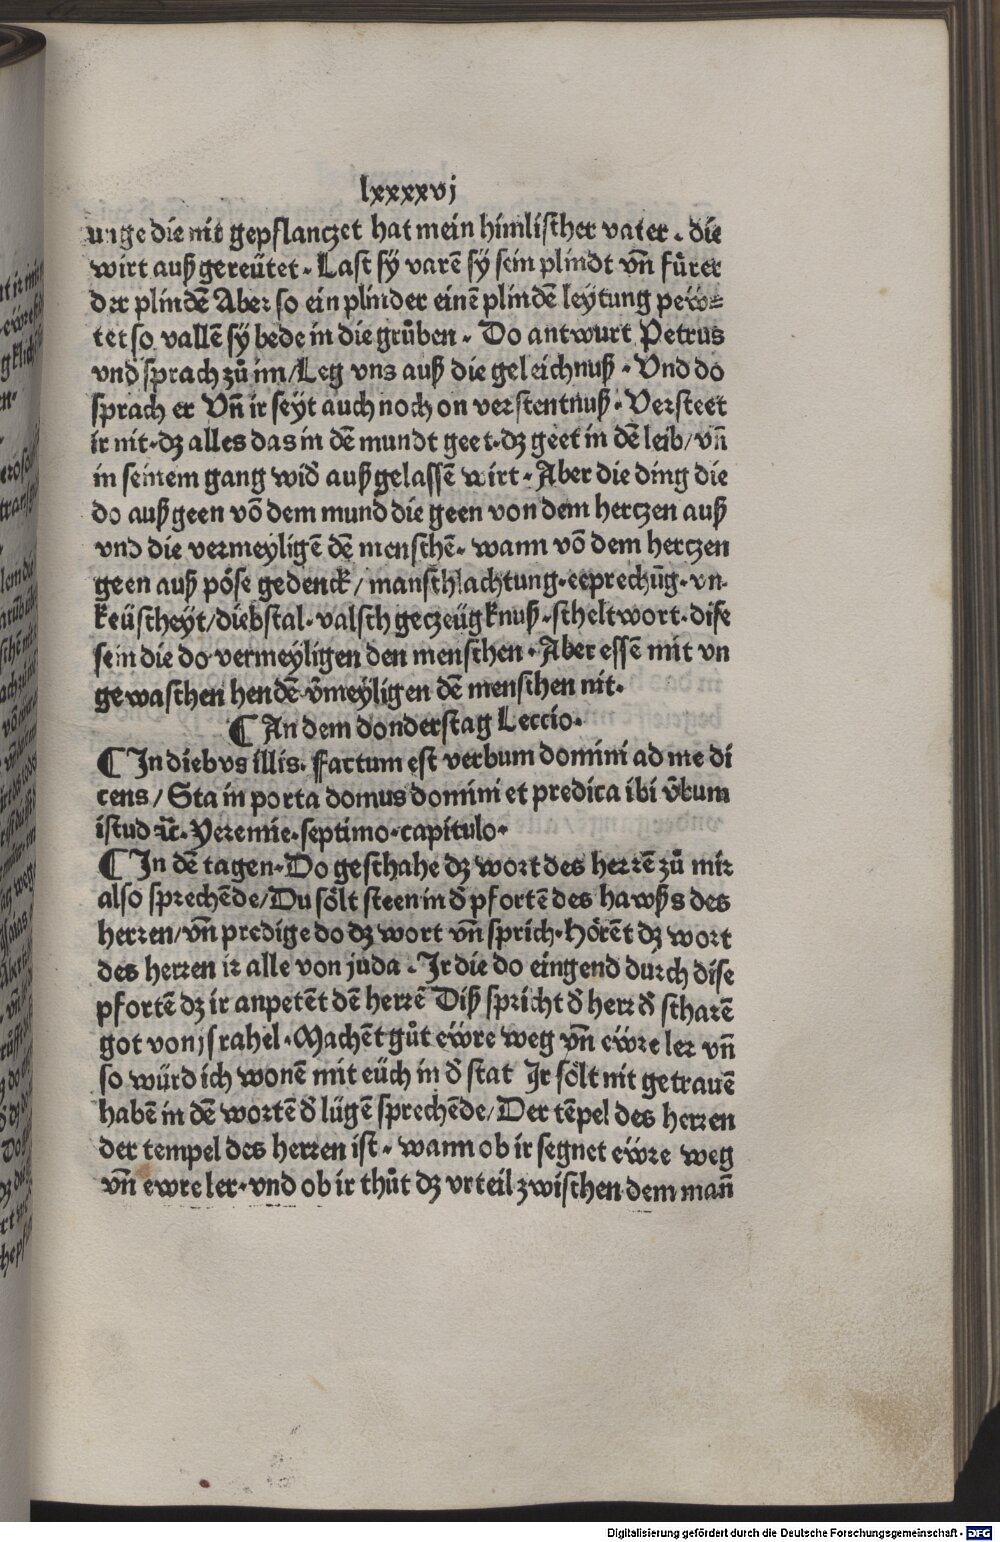 lxxxxvj
unge die nit gepflanczet hat mein himlischer vater . die
wirt auß gereütet . Last sÿ varē sÿ sein plindt vn̄ fůrer
der plindē Aber so ein plinder einē plindē leytung pëw⸗
tet so vallē sÿ bede in die grůben . Do antwurt Petrus
vnd sprach zů im / Leg vns auß die geleichnuß . Vnd do
sprach er Vn̄ ir seyt auch noch on verstentnuß . Versteet
ir nit . dz alles das in dē mundt geet . dz geet in dē leib / vn̄
in seinem gang wid̄ auß gelassē wirt . Aber die ding die
do auß geen vō dem mund die geen von dem hertzen auß
vnd die vermeyligē dē menschē . wann vō dem hertzen
geen auß pöse gedenck / manschlachtung . eeprechūg . vn-
keüscheyt / diebstal . valsch geczeügknuß . scheltwort . dise
sein die do vermeyligen den menschen . Aber essē mit vn
gewaschen hendē v̄meyligen dē menschen nit .
¶ An dem donderstag Leccio .
¶ In diebvs illis . factum est verbum domini ad me di
cens / Sta in porta domus domini et predica ibi v̄bum
istud ꝛc̄ . Yeremie . septimo . capitulo .
¶ In dē tagen . Do geschahe dz wort des herrē zů mir
also sprechēde / Du sölt steen in d̄ pfortē des hawßs des
herren / vn̄ predige do dz wort vn̄ sprich . Hörēt dz wort
des herren ir alle von juda . Ir die do eingend durch dise
pfortē dz ir anpetēt dē herrē Diß spricht d̄ herr d̄ scharē
got von jsrahel . Machēt gůt eẅre weg vn̄ eẅre ler vn̄
so würd ich wonē mit eüch in d̄ stat Ir sölt nit getrauē
habē in dē wortē d̄ lügē sprechēde / Der tēpel des herren
der tempel des herren ist . wann ob ir segnet eẅre weg
vn̄ ewre ler . vnd ob ir thůt dz vrteil zwischen dem man̄
Digitalisierung gefördert durch die Deutsche Forschungsgemeinschaft - DFG